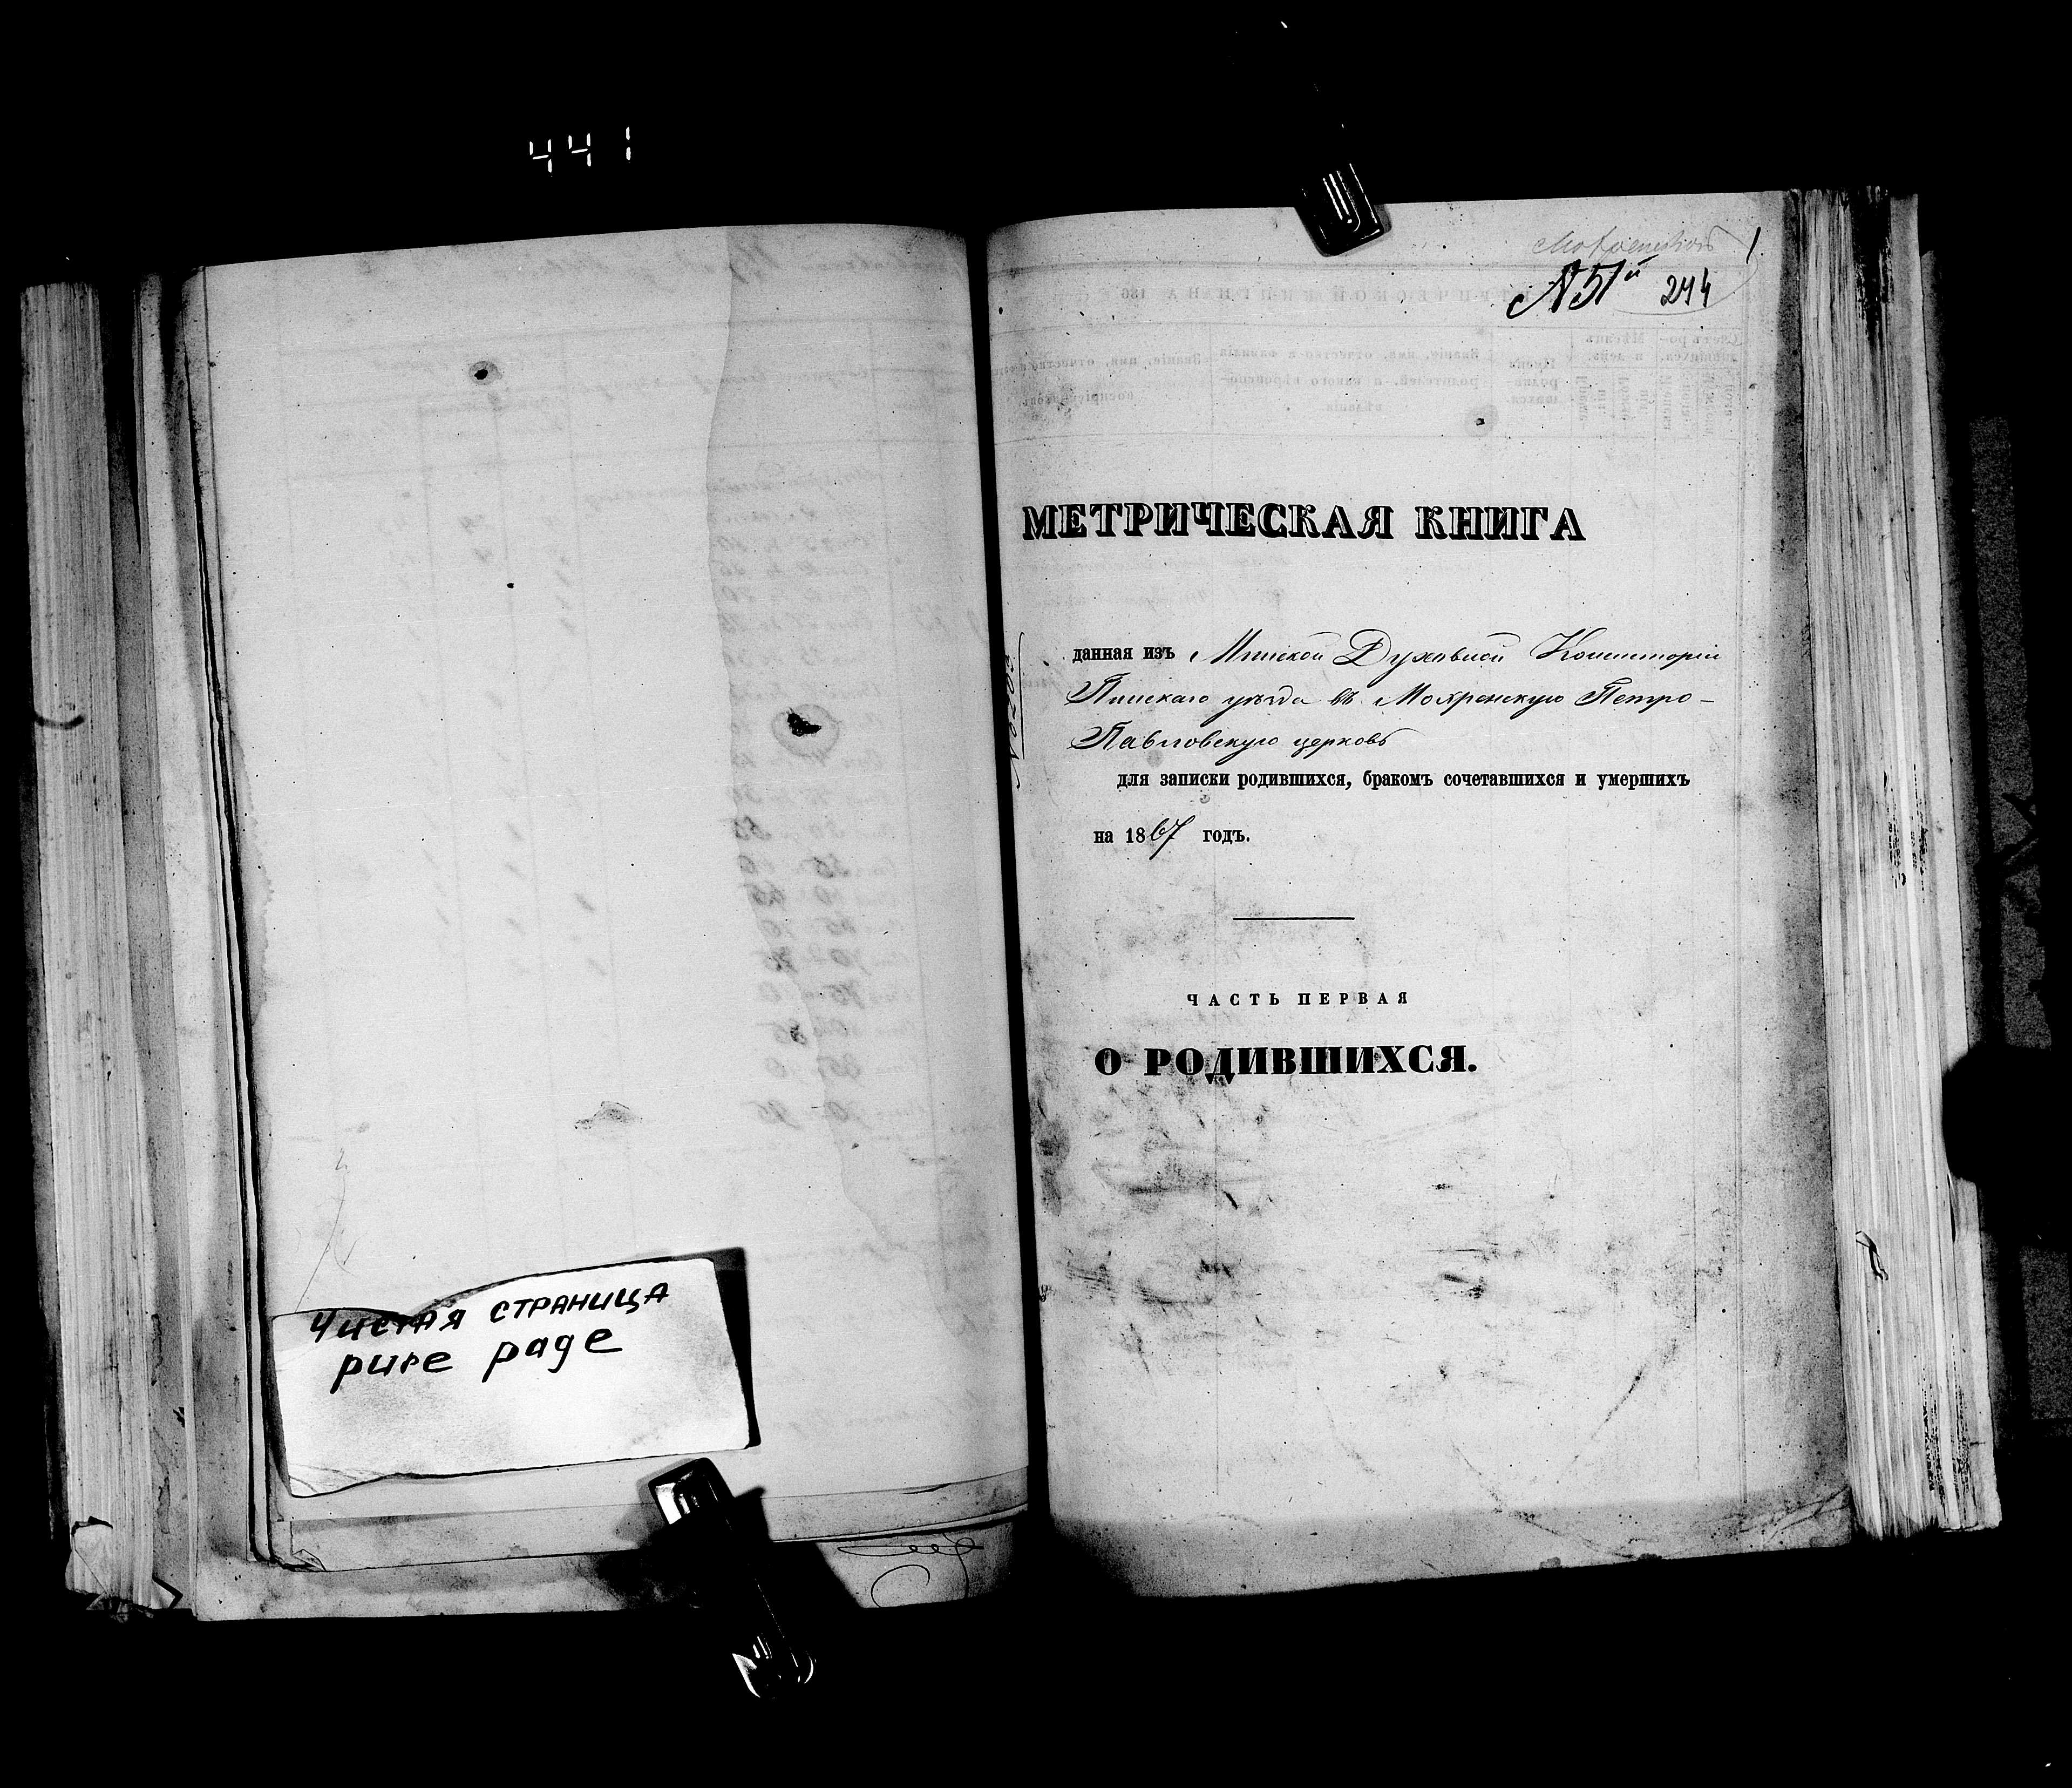 441
Чистая страница
pure page
№ 51й 244
МЕТРИЧЕСКАЯ КНИГА
данная изъ Минской Духовной Консисторіи
Пинскаго уѣзда въ Мохренскую Петро-
Павловскую церковь
для записки родившихся, бракомъ сочетавшихся и умершихъ
на 1867 годъ.
ЧАСТЬ ПЕРВАЯ
О РОДИВШИХСЯ.